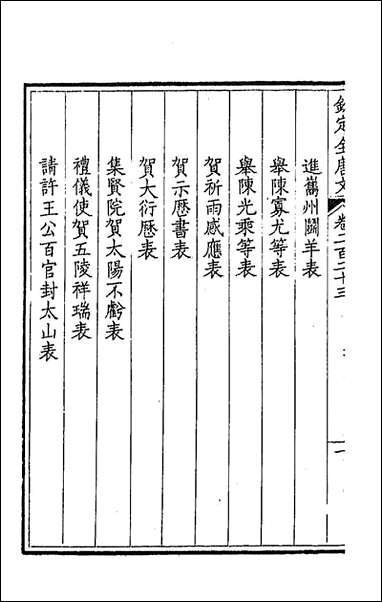 欽定全唐文 卷二百二十三 一
進巂州鬬羊表
舉陳寡尤等表
舉陳光乘等表
賀祈雨感應表
賀示厯書表
賀大衍厯表
集賢院賀太陽不虧表
禮儀使賀五陵祥瑞表
請許王公百官封太山表